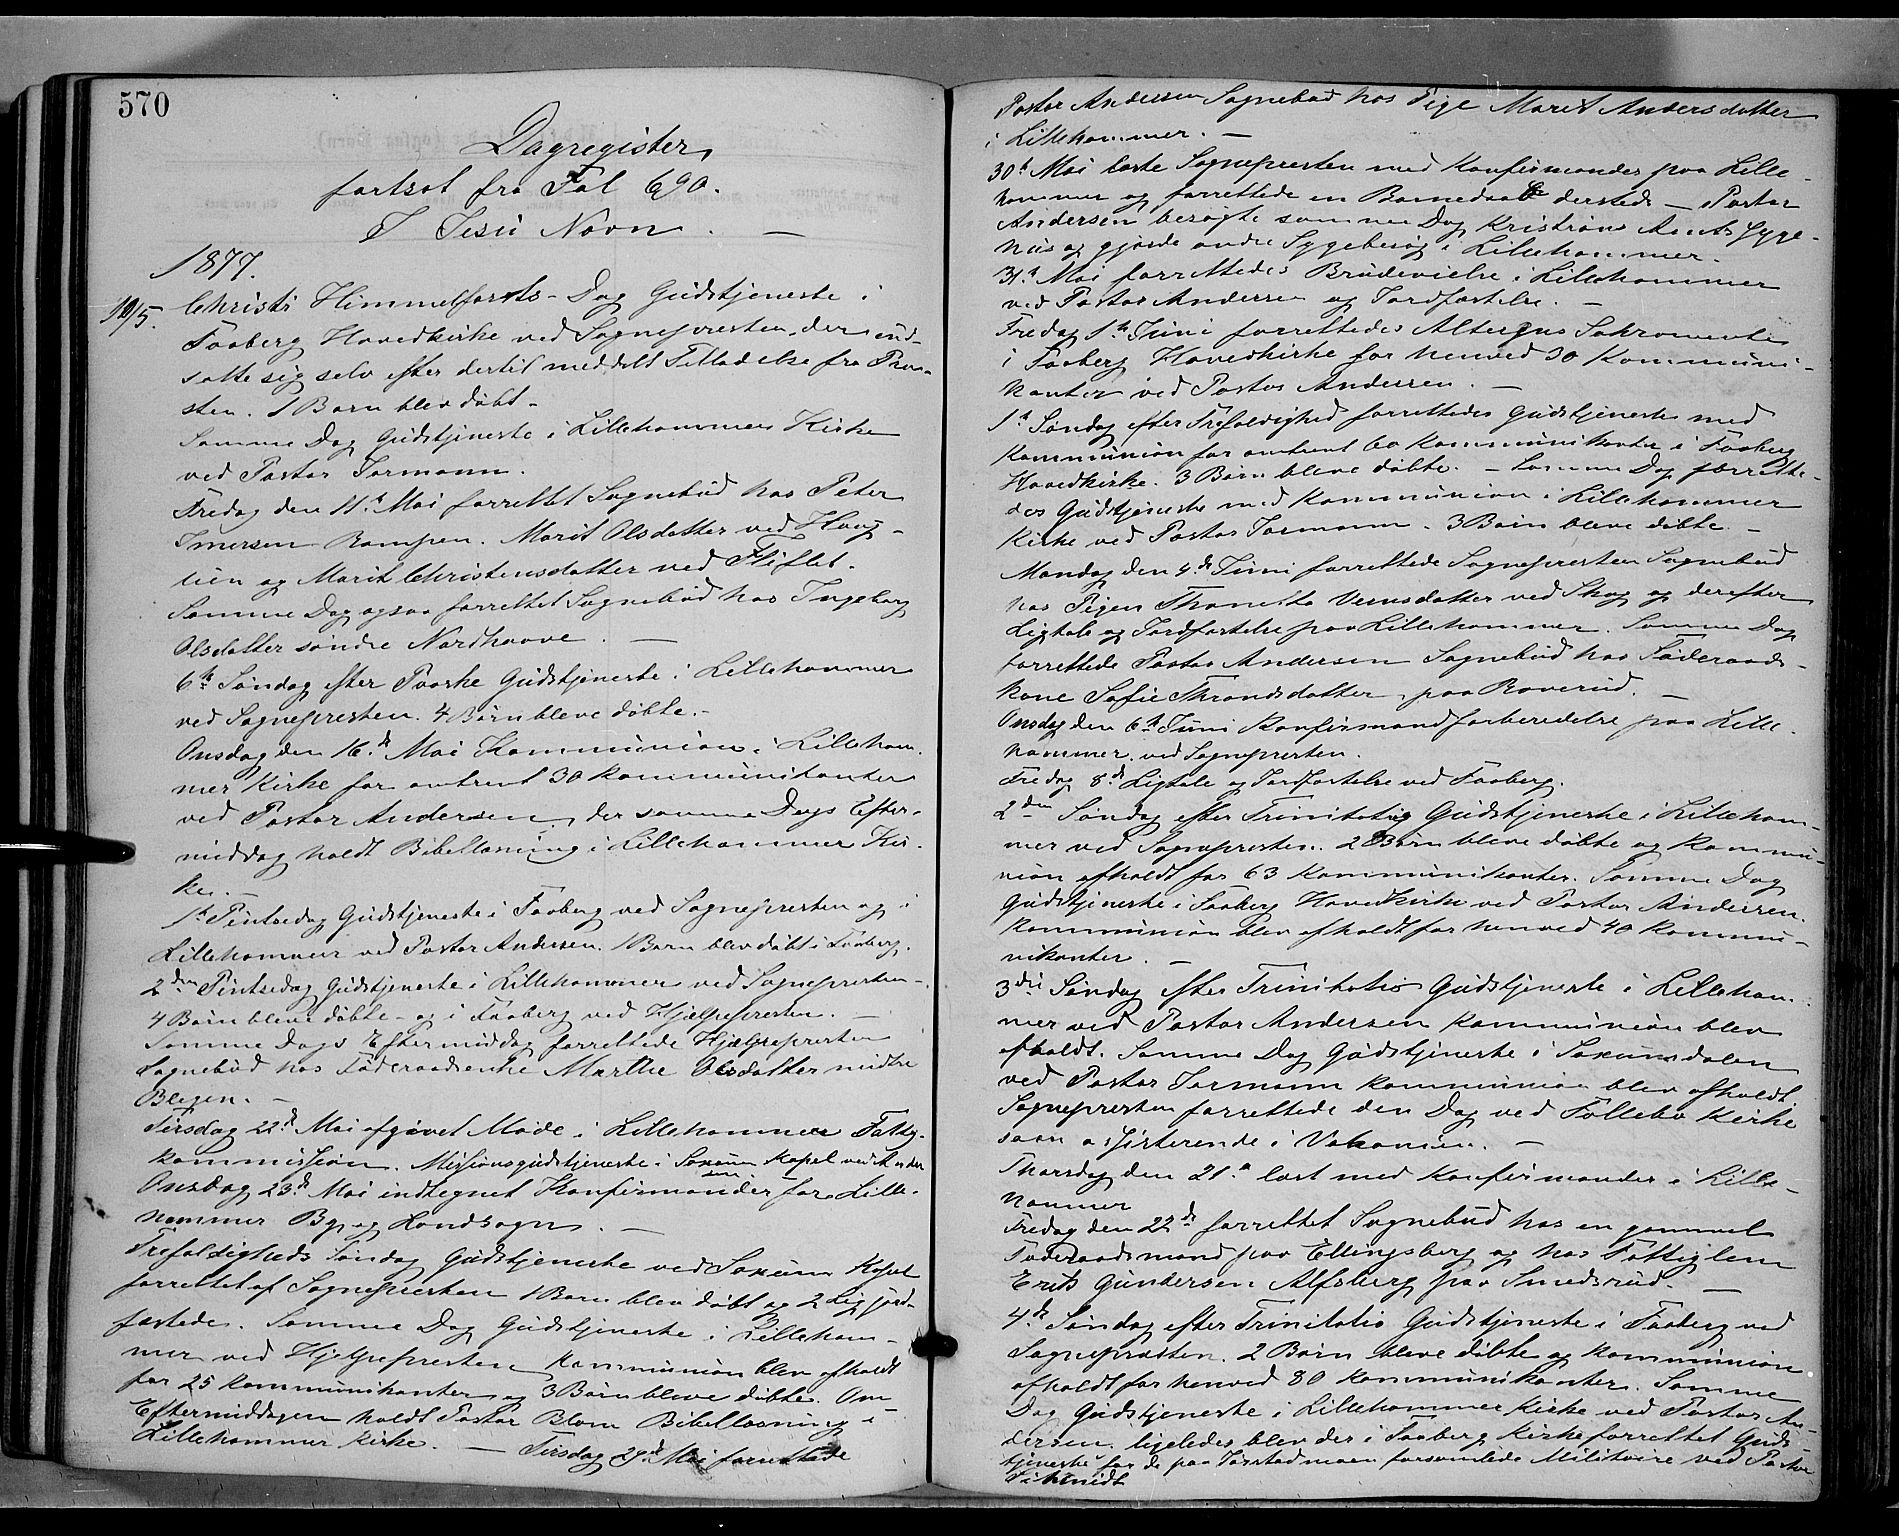 570
Dagregister,
fortsat fra Fol 690.
I Jesu Navn. —
1877.
10/5. Christi Himmelfarts-Dag Gudstjeneste i
Faaberg Hovedkirke ved Sognepresten, der ind-
satte sig selv efter dertil meddelt Tilladelse fra Prov-
sten. 1 Barn blev døbt –
Samme Dag Gudstjeneste i Lillehammer Kirke
ved Pastor Jormann.
Fredag den 11te Mai forrettet Sognebud hos Peter
Imersen Rampen. Marit Olsdatter ved Haug-
lien og Marit Christensdatter ved Fliflet.
Samme Dag ogsaa forrettet Sognebud hos Ingeborg
Olsdatter søndre Nordhaave. —
6te Søndag efter Paaske Gudstjeneste i Lillehammer
ved Sognepresten. 4 Børn bleve døbte. –
Onsdag den 16de Mai Kommunion i Lilleham-
mer Kirke for omtrent 30 Kommunikanter
ved Pastor Andersen, der samme Dags Efter-
middag holdt Bibellæsning i Lillehammer Kir-
ke. –
1te Pintsedag Gudstjeneste i Faaberg ved Sognepresten og i
Lillehammer ved Pastor Andersen. 1 Barn blev døbt i Faaberg.
2den Pintsedag Gudstjeneste i Lillehammer ved Sognepresten –
4 Børn bleve døbte – og i Faaberg ved Hjælpepresten. –
Samme Dags Eftermiddag forrettede Hjælpepresten
Sognebud hos Føderaadsenke Marthe Olsdatter midtre
Blegen. –
Tirsdag 22de Mai afgivet Møde i Lillehammer Fattig-
kommission. Missionsgudstjeneste i Saxum Kapel ved
Onsdag 23de Mai indtegnet Konfirmander for Lille-
hammer By og Landsogn. —
Trefoldigheds Søndag Gudstjeneste ved Saxum Kapel
forrettet af Sognepresten 1 Barn blev døbt og 2 Lig jord-
fæstede. Samme Dag Gudstjeneste i Lilleham-
mer ved Hjelpepresten Kommunion blev afholdt
for 25 Kommunikanter og 3 Børn bleve døbte. Om
Eftermiddagen holdt Pastor Blom Bibellæsning i
Lillehammer Kirke. — Tirsdag 29de Mai forrettede
Pastor Andersen Sognebud hos Pige Marit Andersdatter
i Lillehammer. —
30te Mai læste Sognepresten med Konfirmander paa Lille-
hammer og forrettede en Barnedaab dersteds – Pastor
Andersen besøgte samme Dag Kristians Amts Syge-
hus og gjorde andre Sygebesøg i Lillehammer.
31te Mai forrettedes Brudevielse i Lillehammer
ved Pastor Andersen og Jordfæstelse. –
Fredag 1te Juni forrettedes Altergns Sakramente
i Faaberg Hovedkirke for henved 30 Kommuni-
kanter ved Pastor Andersen. –
1te Søndag efter Trefoldighed forrettedes Gudstjeneste med
Kommunion for omtrent 60 Kommunikanter i Faaberg
Hovedkirke. 3 Børn bleve døbte. – Samme Dag forrette-
des Gudstjeneste med Kommunion i Lillehammer
Kirke ved Pastor Jormann. 3 Børn bleve døbte. –
Mandag den 4de Juni forrettede Sognepresten Sognebud
hos Pigen Thonette ved Skog og derefter
Ligtale og Jordfæstelse paa Lillehammer. Samme Dag
forrettede Pastor Andersen Sognebud hos Føderaads-
kone Sofie Throndsdatter paa Roverud. –
Onsdag den 6te Juni Konfirmandforberedelse paa Lille-
hammer ved Sognepresten.
Fredag 8de Ligtale og Jordfæstelse ved Faaberg.
2den Søndag efter Trinitatis Gudstjeneste i Lilleham-
mer ved Sognepresten. 2 Børn bleve døbte og Kommu-
nion afholdt for 63 Kommunikanter. Samme Dag
Gudstjeneste i Faaberg Hovedkirke ved Pastor Andersen.
Kommunion blev afholdt for henved 40 Kommu-
nikanter. –
3die Søndag efter Trinitatis Gudstjeneste i Lilleham-
mer ved Pastor Andersen Kommunion blev
afholdt. Samme Dag Gudstjeneste i Saxumdalen
ved Pastor Jormann Kommunion blev afholdt
Sognepresten forrettede den Dag ved Follebo Kirke
saan assisterende i Vakansen. –
Thorsdag den 21de læst med Konfirmander i Lille-
hammer
Fredag den 22de forrettet Sognebud hos en gammel
Føderaadsmand paa Ellingsberg og hos Fattiglem
Erik Gundersen Alfsberg paa Smedsrud. —
4de Søndag efter Trinitatis Gudstjeneste i Faaberg ved
Sognepresten. 2 Børn bleve døbte og Kommunion
afholdt for henved 80 Kommunikanter. Samme
Dag Gudstjeneste i Lillehammer Kirke ved Pastor An-
dersen. ligeledes blev der i Faaberg Kirke forrettet Guds-
tjeneste for de paa Jørstadmoen forsamlede Militaire ved Pastor
Schmidt